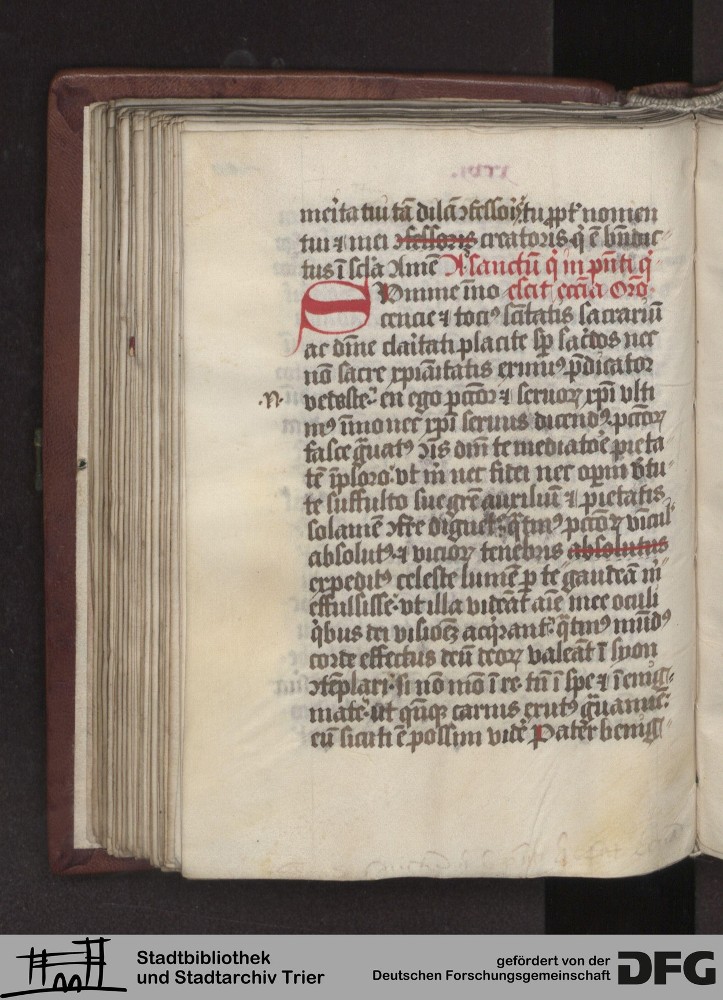 merita tui tā dilcī ꝯfessoriꝰ tu ꝓpt' nomen
tui ⁊ mei ꝯfessoris creatoris q̇ ē bn̄dic-
tus ī scl'a Amē A sanctū q̇ in pn̄ti q̇-
Summe īmo escit eccīa Orō
cencie ⁊ tociꝰ scītatis sacrariū
ac dīne claitati placite sꝑ sac̓dos nec
nō sacre xp̄ianitatis eximiꝰ p̄dicator
.N. celeste
en ego pcc̄toꝝ ⁊ seruoꝝ xp̄i vlti
mꝰ īmo nec xp̄i seruus dicendꝰ pcc̄toꝝ
fasce g̓uatꝰ
te mediatoē pieta
tē īploro vt m̄ nec fidei nec opm̄ v̓tu
te suffulto sue grē auxiliū ⁊ pietatis
solamē ꝯfr̄e digneris
pcc̄toꝝ vīcul'
absolutꝰ ⁊ vicioꝝ tenebris absolutus
expeditꝰ celeste lumē ꝑ te gaudeā m̄
effulsisse vt illa videāt aīe mee oculi
q̇bus dei visiōēꝫ acq̇rant q̄tinꝰ mūdꝰ
corde effectus deū deoꝝ valeāt ī syon
ꝯtēplari si nō mō ī re tn̄ ī spe ⁊ ī enig-
mate ut qn̄qꝫ carnis exutꝰ g̓uamīe
eū sicuti ē possim vidē Pater benig
Stadtbibliothek
und Stadtarchiv Trier
gefördert von der
Deutschen Forschungsgemeinschaft
DFG